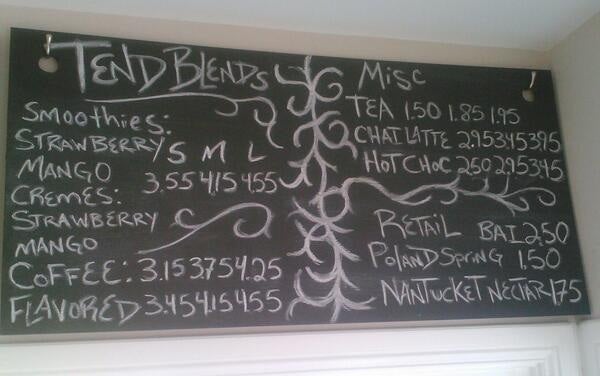 TEND BLENDS
Smoothies:
STRAWBERRY S M L
MANGO 3.55 4.15 4.55
CREMES:
STRAWBERRY
MANGO
COFFEE: 3.15 3.75 4.25
FLAVORED 3.45 4.15 4.55
Misc
TEA 1.50 1.85 1.95
CHAI LATTE 2.95 3.45 3.95
HOT CHOC 2.50 2.95 3.45
RETAIL BAI 2.50
POLAND SPRING 1.50
NANTUCKET NECTAR 1.75